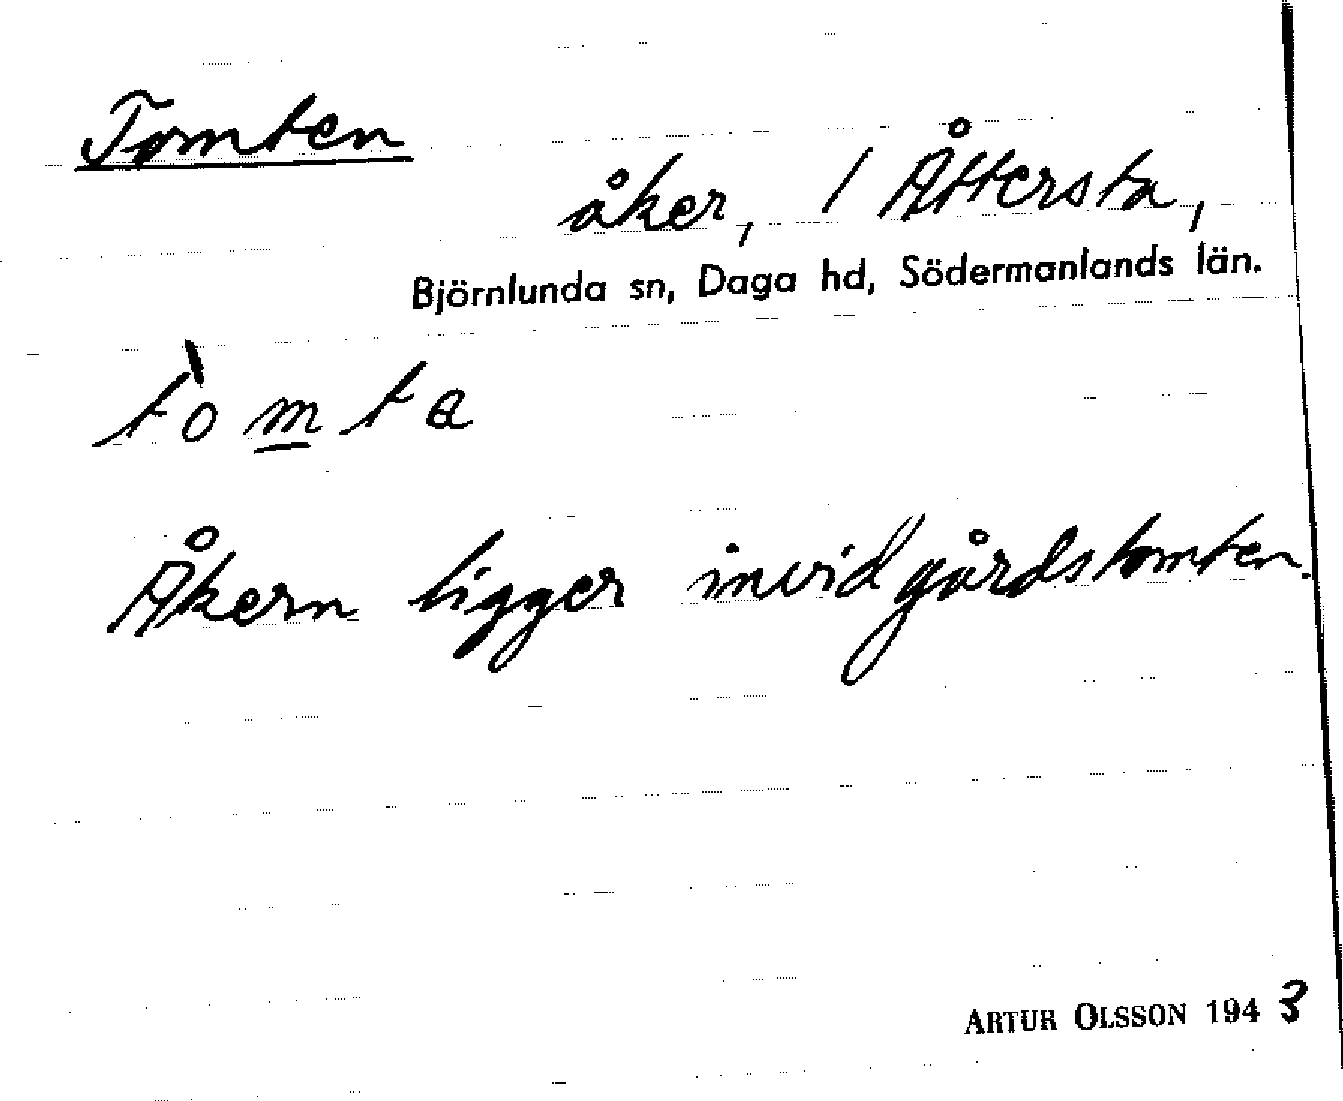 Tomten
åker, / Åttersta,
Björnlunda sn, Daga hd, Södermanlands län.
tòmta
Åkern ligger invid gårdstomten.
ARTUR OLSSON 1943